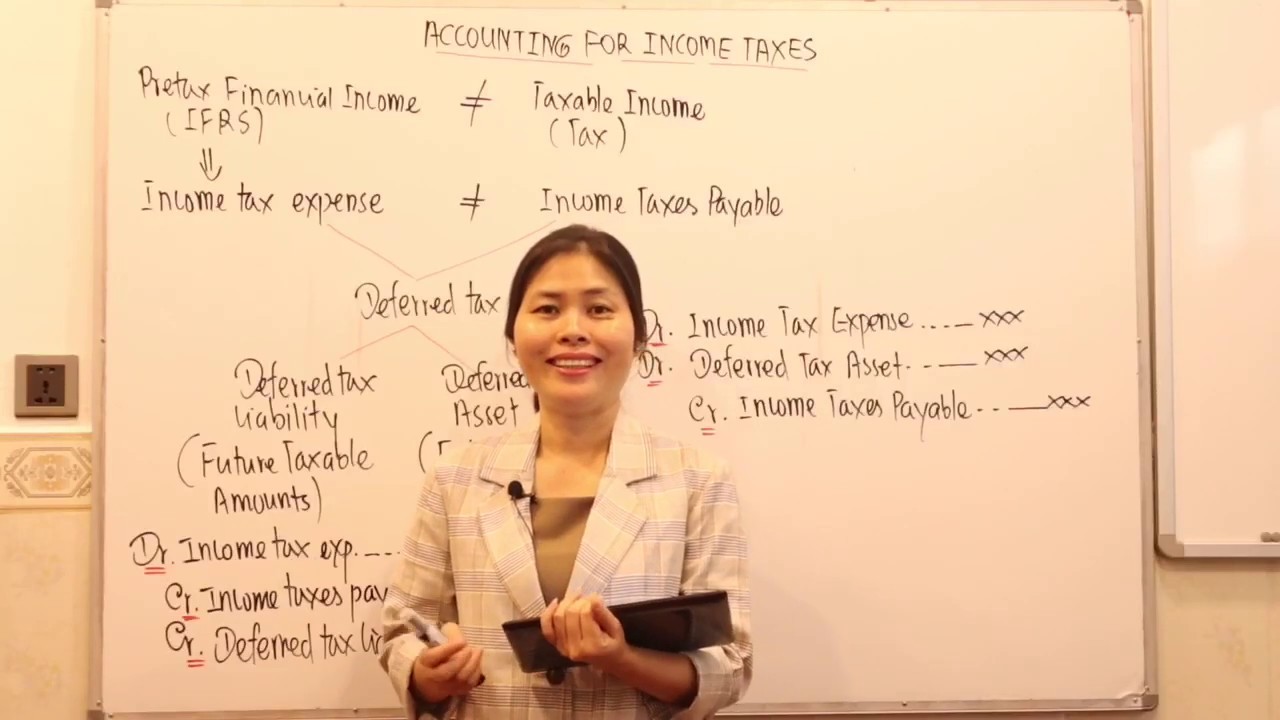 ACCOUNTING FOR INCOME TAXES
Pretax Financial Income ≠ Taxable Income
(IFRS) (Tax)
⇓
Income tax expense ≠ Income Taxes Payable
Deferred tax
Deferred tax
Liability
(Future Taxable
Amounts)
Dr. Income tax exp.
Cr. Income taxes
Cr. Deferred tax
Deferred
Asset
Dr. Income Tax Expense ....— xxx
Dr. Deferred Tax Asset. - — xxx
Cr. Income Taxes Payable - - — xxx